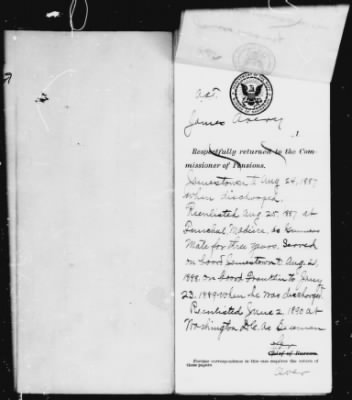 act.
James Avery
Respectfully returned to the Com-
missioner of Pensions.
Jamestown to Aug 24, 1887
when discharged.
Reenlisted Aug 25, 1887 at
Funchal, Madeira, as Gunners
Mate for three years. Served
on board Jamestown to Aug 21,
1888, on board Franklin to
23, 1889 when he was discharged.
Reenlisted June 2, 1890 at
Washington D.C. as
Chief of Bureau.
Further correspondence in this case requires the return of
these papers
over